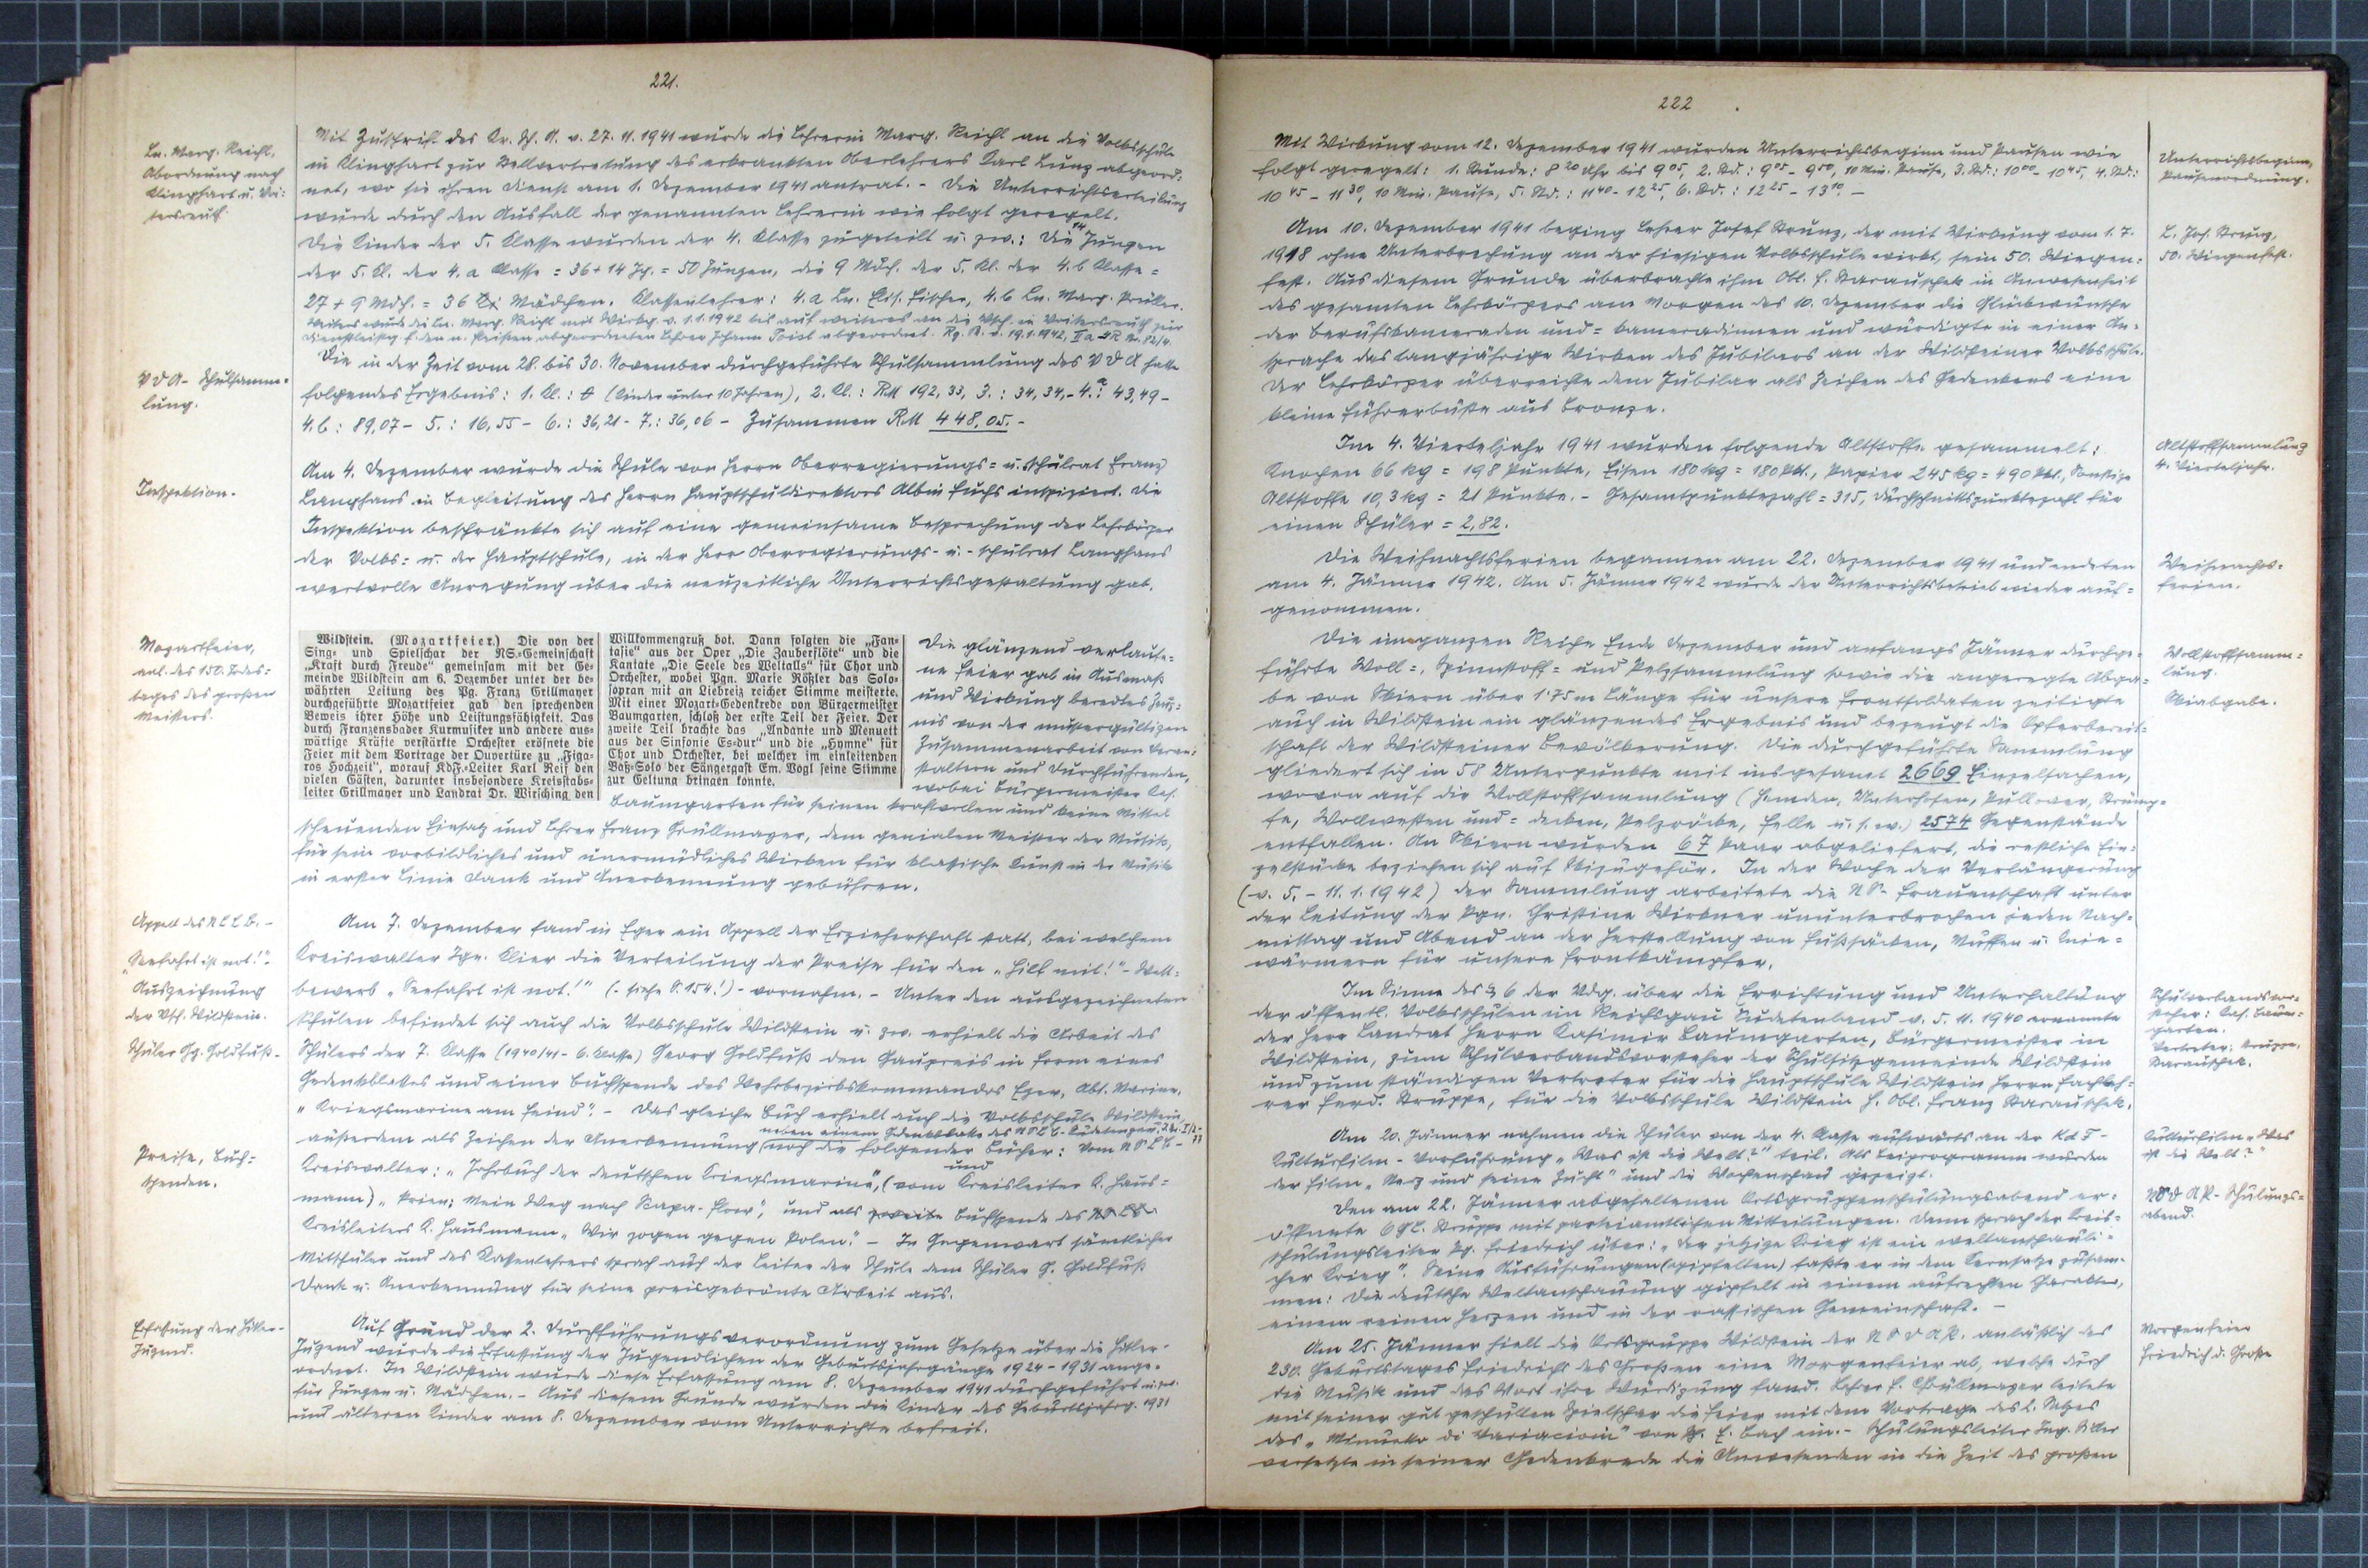 221.
Ln. Marg. Reichl,
Abordnung nach
Klinghart u. Voi-
tersreuth.
Mit Zuschrift des Kr. Sch. A. v. 27. 11. 1941 wurde die Lehrerin Marg. Reichl an die Volksschule
in Klinghart zur Stellvertretung des erkrankten Oberlehrers Karl Lunz abgeord-
net, wo sie ihren Dienst am 1. Dezember 1941 antrat. - Die Unterrichtserteilung
wurde durch den Ausfall der genannten Lehrerin wie folgt geregelt.
Die Kinder der 5. Klasse wurden der 4. Klasse zugeteilt u. zw.: Die 14 Jungen
der 5. Kl. der 4. a Klasse = 36 + 14 Jg. = 50 Jungen, die 9 Mdch. der 5. Kl. der 4. b Klasse =
27 + 9 Mdch. = 36 Mädchen. Klassenlehrer: 4. a Ln. Elis. Fischer, 4. b Ln. Marg.
Weiters wurde die Ln. Marg. Reichl mit Wirkg. v. 1. 1. 1942 bis auf weiteres an die Vsch. in Voitersreuth zur
Dienstleistg. f. den n. abgeordneten Lehrer Johann abgeordnet. Rg. P. v. 19. 1. 1942, 82/4.
VDA- Schulsamm-
lung.
Die in der Zeit vom 28. bis 30. November durchgeführte Schulsammlung des V D A hatte
folgendes Ergebnis: 1. Kl.: 0 (Kinder unter 10 Jahren), 2. Kl.: RM 192,33, 3.: 34,34,- 4. a: 43,49 -
4. b: 89,07 - 5.: 16,55 - 6.: 36,21 - 7.: 36,06 - Zusammen RM 448,05. -
Inspektion.
Am 4. Dezember wurde die Schule von Herrn Oberregierungs= u. Schulrat Franz
Langhans in Begleitung des Herrn Hauptschuldirektors Albin Fuchs inspiziert. Die
Inspektion beschränkte sich auf eine gemeinsame Besprechung der Lehrkörper
der Volks= u. der Hauptschule, in der Herr Oberregierungs- u. -schulrat Langhans
wertvolle Anregung über die neuzeitliche Unterrichtsgestaltung gab.
Mozartfeier,
anl. des 150. Todes-
tages des großen
Meisters.
Wildstein. (Mozartfeier.) Die von der
Sing- und Spielschar der NS.-Gemeinschaft
„Kraft durch Freude“ gemeinsam mit der Ge-
meinde Wildstein am 6. Dezember unter der be-
währten Leitung des Pg. Franz Grillmayer
durchgeführte Mozartfeier gab den sprechenden
Beweis ihrer Höhe und Leistungsfähigkeit. Das
durch Franzensbader Kurmusiker und andere aus-
wärtige Kräfte verstärkte Orchester eröffnete die
Feier mit dem Vortrage der Ouvertüre zu „Figa-
ros Hochzeit“, worauf KdF.-Leiter Karl Reif den
vielen Gästen, darunter insbesondere Kreisstabs-
leiter Grillmayer und Landrat Dr. Wirsching den
Willkommengruß bot. Dann folgten die „Fan-
tasie“ aus der Oper „Die Zauberflöte“ und die
Kantate „Die Seele des Weltalls“ für Chor und
Orchester, wobei Pgn. Marie Rößler das Solo-
sopran mit an Liebreiz reicher Stimme meisterte.
Mit einer Mozart-Gedenkrede von Bürgermeister
Baumgarten, schloß der erste Teil der Feier. Der
zweite Teil brachte das „Andante und Menuett
aus der Sinfonie Es-dur“ und die „Hymne“ für
Chor und Orchester, bei welcher im einleitenden
Baß-Solo der Sängergast Em. Vogl seine Stimme
zur Geltung bringen konnte.
Die glänzend verlaufe-
ne Feier gab in Ausmaß
und Wirkung beredtes Zeug-
nis von der mustergültigen
Zusammenarbeit von Veran-
staltern und Durchführenden,
wobei Bürgermeister Kas.
Baumgarten für seinen kraftvollen und keine Mittel
scheuenden Einsatz und Lehrer Franz Grüllmayer, dem genialen Meister der Musik,
für sein vorbildliches und unermüdliches Wirken für klassische Kunst in der Musik
in erster Linie Dank und Anerkennung gebühren.
Appell des NSLB. -
„Seefahrt ist not!“-
Auszeichnung
der Vsch. Wildstein.
Schüler Gg. Goldfuß -
Am 7. Dezember fand in Eger ein Appell der Erzieherschaft statt, bei welchem
Kreiswalter Klier die Verteilung der Preise für den „Hilf mit!“- Wett-
bewerb „Seefahrt ist not!“ (- siehe S. 154!) - vornahm. - Unter den ausgezeichneten
Schulen befindet sich auch die Volksschule Wildstein u. zw. erhielt die Arbeit des
Schülers der 7. Klasse (1940/41 - 6. Klasse) Georg Goldfuß den Gaupreis in Form eines
Gedenkblattes und einer Buchspende des Wehrbezirkskommandos Eger, Abt. Marine,
„Kriegsmarine am Feind“. - Das gleiche Buch erhielt auch die Volksschule Wildstein
neben einem Gedenkblatte des NSLB.
außerdem als Zeichen der Anerkennung noch die folgenden Bücher: Vom NSLB -
Preise, Buch-
spenden.
Kreiswalter: „Jahrbuch der deutschen Kriegsmarine“, und (vom Kreisleiter K. Haus-
mann) „Prien; Mein Weg nach Scapa-Flow“, und als zweite Buchspende des
Kreisleiters K. Hausmann „Wir zogen gegen Polen.“ - In Gegenwart sämtlicher
Mitschüler und des Klassenlehrers sprach auch der Leiter der Schule dem Schüler G. Goldfuß
Dank u. Anerkennung für seine preisgekrönte Arbeit aus.
Erfassung der Hitler-
Jugend.
Auf Grund der 2. Durchführungsverordnung zum Gesetze über die Hitler-
Jugend wurde die Erfassung der Jugendlichen der Geburtsjahrgänge 1924 - 1931 ange-
ordnet. In Wildstein wurde diese Erfassung am 8. Dezember 1941 durchgeführt u. zw.
für Jungen u. Mädchen. - Aus diesem Grunde wurden die Kinder des Geburtsjahrg. 1931
und älteren Kinder am 8. Dezember vom Unterrichte befreit.
222
Mit Wirkung vom 12. Dezember 1941 wurden Unterrichtsbeginn und Pausen wie
folgt geregelt: 1. Stunde: 8 20 Uhr bis 9 05, 2. Std.: 9 05 - 9 50, 10 Min. Pause, 3. Std.: 10 00 - 10 45, 4. Std.:
10 45 - 11 30, 10 Min. Pause, 5. Std.: 11 40 - 12 25, 6. Std.: 12 25 - 13 10. -
Unterrichtsbeginn,
Pausenordnung.
Am 10. Dezember 1941 beging Lehrer Josef Strunz, der mit Wirkung vom 1. 7.
1918 ohne Unterbrechung an der hiesigen Volksschule wirkt, sein 50. Wiegen-
fest. Aus diesem Grunde überbrachte ihm Obl. F. Starauschek in Anwesenheit
des gesamten Lehrkörpers am Morgen des 10. Dezember die Glückwünsche
der Berufskameraden und =kameradinnen und würdigte in einer An-
sprache das langjährige Wirken des Jubilars an der Wildsteiner Volksschule.
Der Lehrkörper überreichte dem Jubilar als Zeichen des Gedenkens eine
kleine Führerbüste aus Bronze.
L. Jos. Strunz,
50. Wiegenfest.
Im 4. Vierteljahr 1941 wurden folgende Altstoffe gesammelt:
Knochen 66 kg = 198 Punkte, Eisen 180 kg = 180 Pkt., Papier 245 kg = 490 Pkt., Sonstige
Altstoffe 10,3 kg = 21 Punkte. - Gesamtpunktezahl = 315, Durchschnittspunktezahl für
einen Schüler = 2,82.
Altstoffsammlung
4. Vierteljahr.
Die Weihnachtsferien begannen am 22. Dezember 1941 und endeten
am 4. Jänner 1942. Am 5. Jänner 1942 wurde der Unterrichtsbetrieb wieder auf-
genommen.
Weihnachts-
ferien.
Die im ganzen Reiche Ende Dezember und anfangs Jänner durchge-
führte Woll=, Spinnstoff= und Pelzsammlung sowie die angeregte Abga-
be von Skiern über 1·75 m Länge für unsere Frontsoldaten zeitigte
auch in Wildstein ein glänzendes Ergebnis und bezeugt die Opferbereit-
schaft der Wildsteiner Bevölkerung. Die durchgeführte Sammlung
gliedert sich in 58 Unterpunkte mit insgesamt 2669 Einzelsachen,
wovon auf die Wollstoffsammlung (Hemden, Unterhosen, Pullover, Strümp-
fe, Wollwesten und =decken, Pelzröcke, Felle u. s. w.) 2574 Gegenstände
entfallen. An Skiern wurden 67 Paar abgeliefert, die restliche Ein-
zelstücke beziehen sich auf Skizugehör. In der Woche der Verlängerung
(v. 5. - 11. 1. 1942) der Sammlung arbeitete die NS-Frauenschaft unter
der Leitung der Pgn. Christine Wirkner ununterbrochen jeden Nach-
mittag und Abend an der Herstellung von Fußsäcken, Muffen u. Knie-
wärmern für unsere Frontkämpfer.
Wollstoffsamm-
lung.
Skiabgabe.
Im Sinne des § 6 der Vdg. über die Errichtung und Unterhaltung
der öffentl. Volksschulen im Reichsgau Sudetenland v. 5. 11. 1940 ernannte
der Herr Landrat Herrn Kasimir Baumgarten, Bürgermeister in
Wildstein, zum Schulverbandsvorsteher der Schulsitzgemeinde Wildstein
und zum ständigen Vertreter für die Hauptschule Wildstein Herrn Fachleh-
rer Ferd. Struppe, für die Volksschule Wildstein H. Obl. Franz Starauschek.
Schulverbandsvor-
steher: Kas. Baum-
garten.
Vertreter: Struppe,
Starauschek.
Am 20. Jänner nahmen die Schüler von der 4. Klasse aufwärts an der KdF-
Kulturfilm-Vorführung „Was ist die Welt?“ teil. Als Beiprogramm wurden
der Film „Nerz und seine Zucht“ und die Wochenschau gezeigt.
Kulturfilm „Was
ist die Welt?“
Den am 22. Jänner abgehaltenen Ortsgruppenschulungsabend er-
öffnete OGL. Struppe mit parteiamtlichen Mitteilungen. Dann sprach der Kreis-
schulungsleiter Pg. Friedrich über: „Der jetzige Krieg ist ein weltanschauli-
cher Krieg“. Seine Ausführungen (gipfelten) faßte er in dem Kernsatze zusam-
men: Die deutsche Weltanschauung gipfelt in einem aufrechten Charakter,
einem reinen Herzen und in der rassischen Gemeinschaft. -
NSDAP.- Schulungs-
abend.
Am 25. Jänner hielt die Ortsgruppe Wildstein der NSDAP. anläßlich des
230. Geburtstages Friedrichs des Großen eine Morgenfeier ab, welche durch
die Musik und das Wort ihre Würdigung fand. Lehrer F. Grüllmayer leitete
mit seiner gut geschulten Spielschar die Feier mit dem Vortrage des 2. Satzes
des „Minuetto di Variacioni“ von Ph. E. Bach ein. - Schulungsleiter Ing.
versetzte in seiner Gedenkrede die Anwesenden in die Zeit des großen
Morgenfeier
Friedrich d. Große